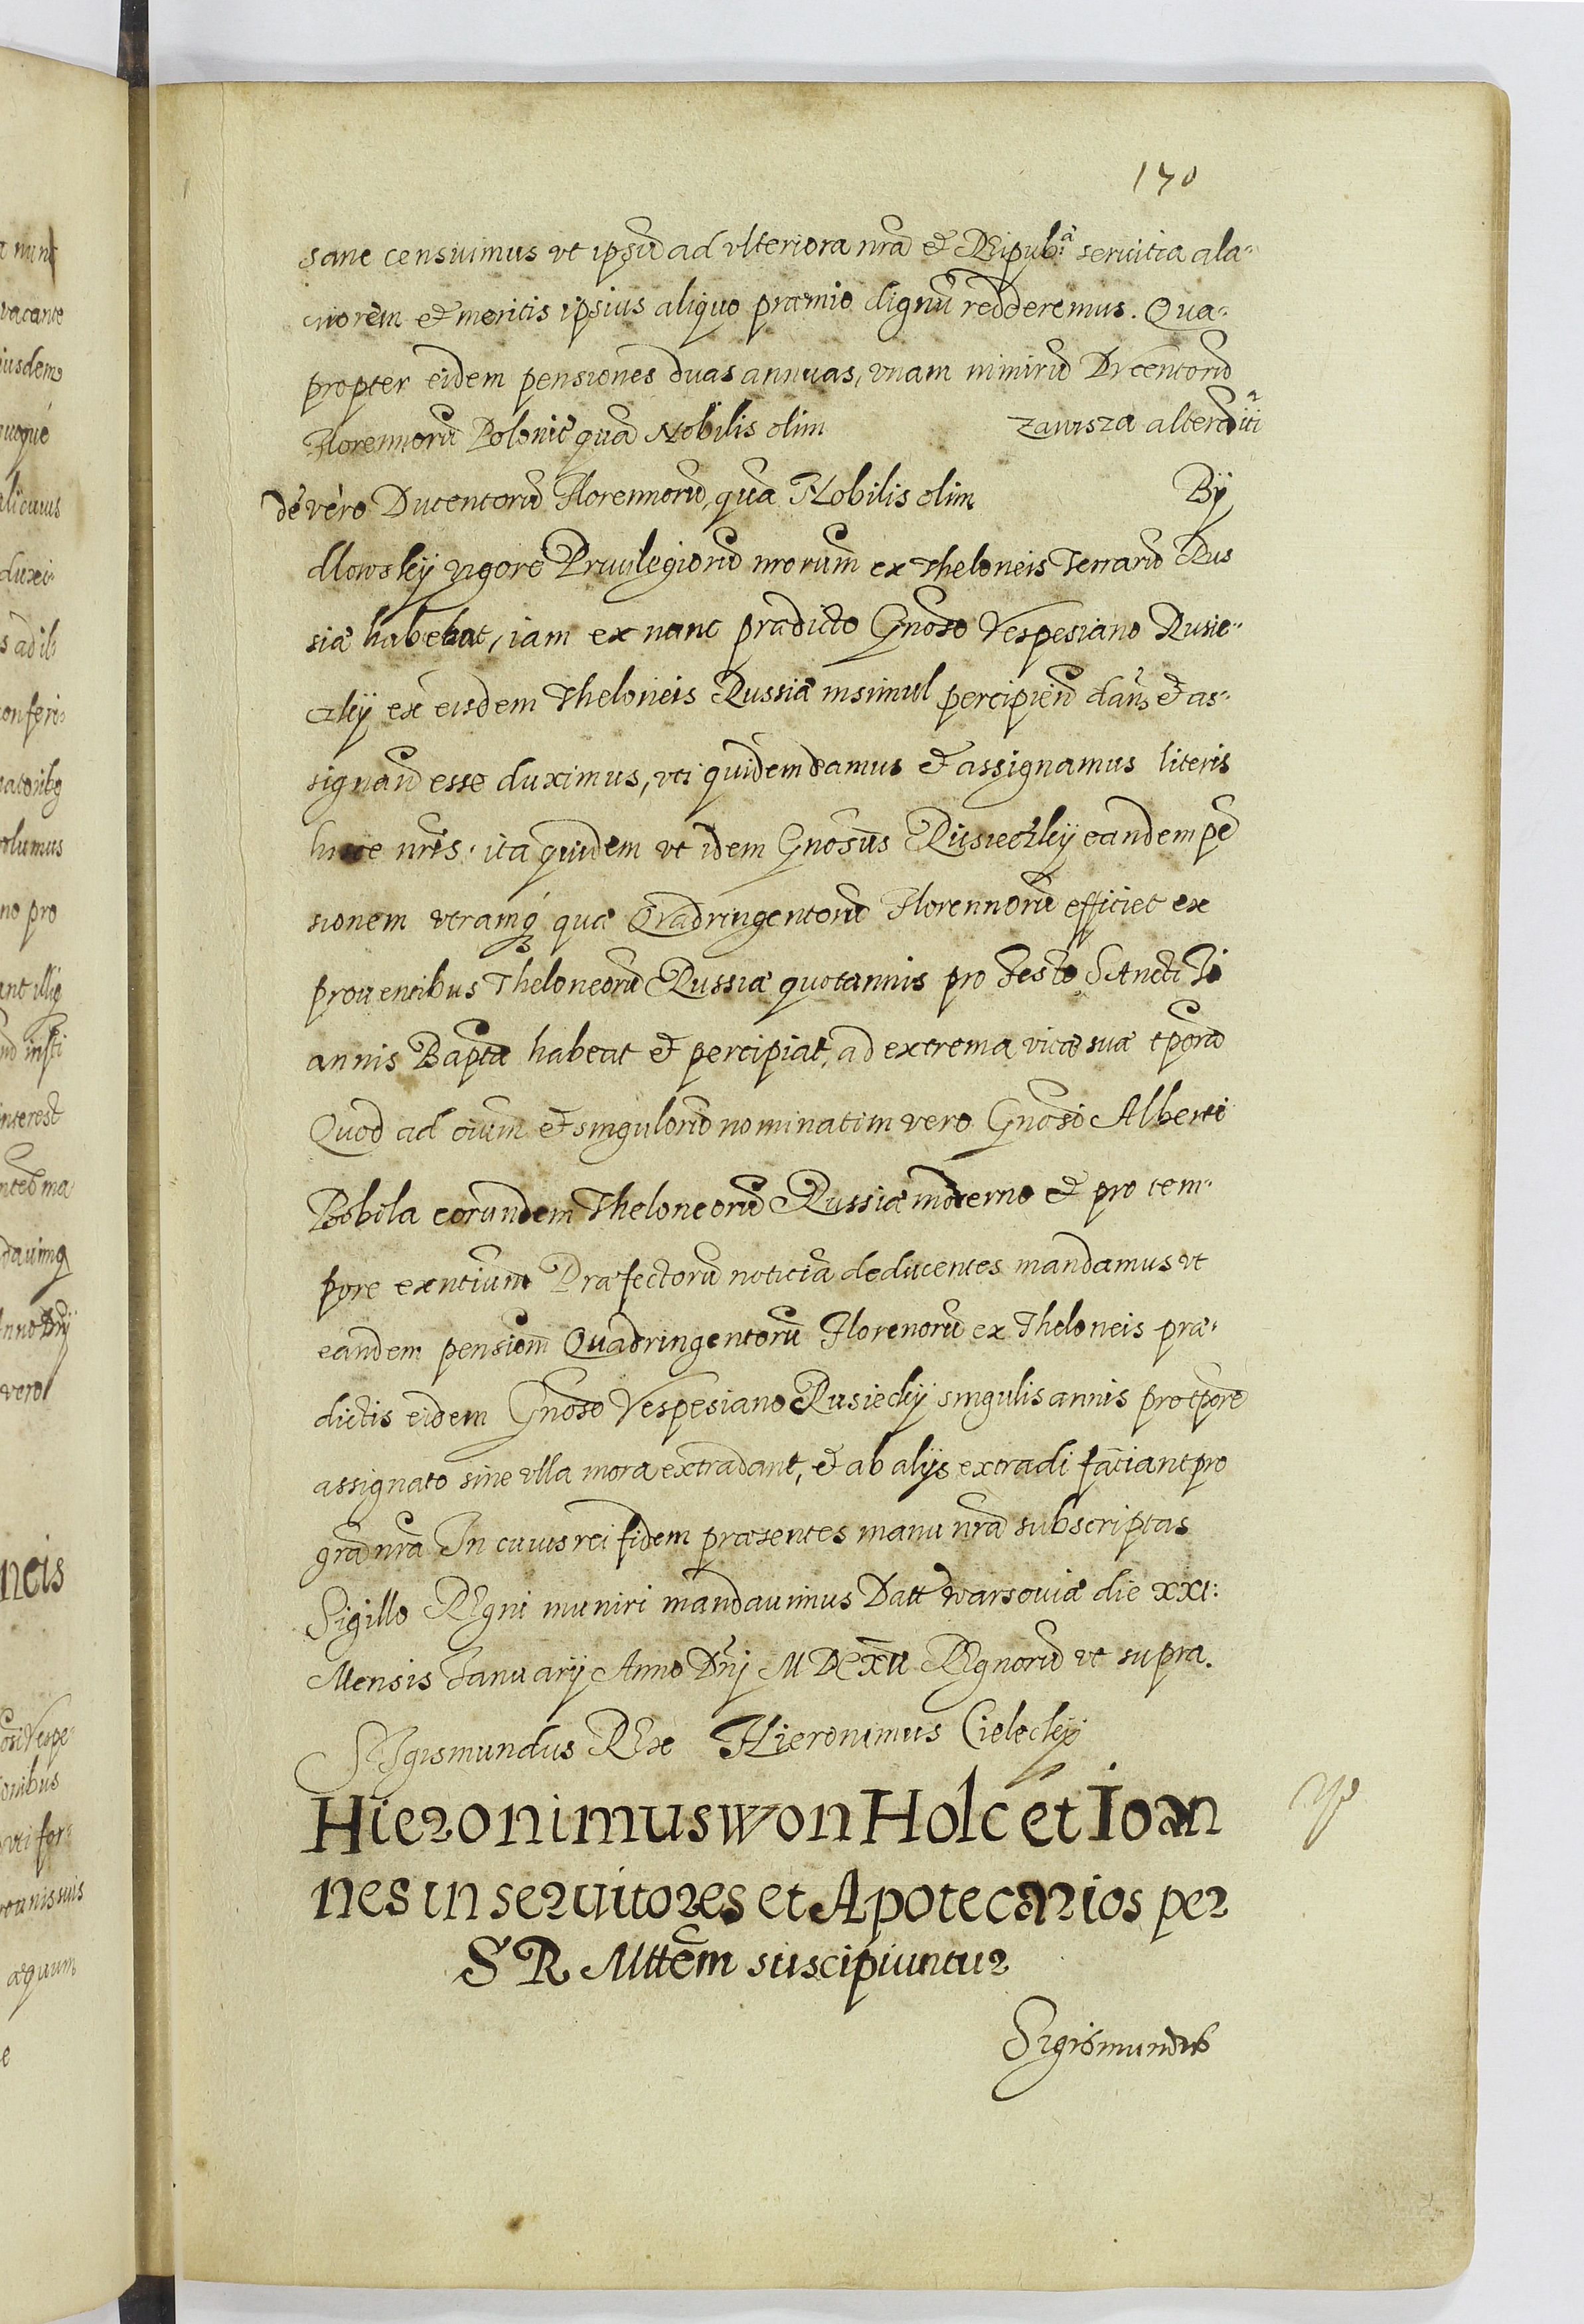 170
sane censuimus vt ipsũ ad vlteriora nr̃a et Reipub: seruitia ala-
criorem et meritis ipsius aliquo præmio dignũ redderemus. Qua-
propter eidem pensiones duas annuas, vnam nimirũ Ducentorũ
Florennorũ Polonic quã Nobilis olim Zawisza alterã iti
dẽ vero Ducentorũ Florennorũ, quã Nobilis olim By
dlowsky vigore Priuilegiorũ nrorum ex Theloneis Terrarũ Rus
siæ habebat, iam ex nunc prædicto Gnoso Vespesiano Rusie-
czky ex eisdem Theloneis Russiæ insimul percipien̄ dan̄ et as-
signan̄ esse duximus, vti quidem damus et assignamus literis
hisce nr̃is. ita quidem vt idem Gnosus Rusieczky eandem pẽ
sionem vtramq́ quæ Quadringentorũ Florennorũ efficiet ex
prouentibus Theloneorũ Russiæ quotannis pro Festo Sancti Io
annis Baptæ habeat et percipiat, ad extrema vitæ suæ tpora
Quod ad oium et singulorũ nominatim vero Gnosi Alberti
Bobola eorundem Theloneorũ Russiæ moderno et pro tem-
pore exntium Præfectorũ noticiã deducentes mandamus vt
eandem pensiom̃ Quadringentorũ Florenorũ ex Theloneis præ-
dictis eidem Gnoso Vespesiano Rusiecky singulis annis pro tpore
assignato sine vlla mora extradant, et ab alijs extradi faciant pro
grã nrã In cuius rei fidem præsentes manu nrã subscriptas
Sigillo Regni muniri mandauimus Datt Warsouiæ die XXI:
Mensis Ianuarij Anno Dñj MDCXII Regnorũ vt supra.
Sigismundus Rex Hieronimus Cielecky
Hieronimus won Holc et Ioan
nes in seruitores et Apotecarios per
S R Mttẽm suscipiuntur
Sigismundus